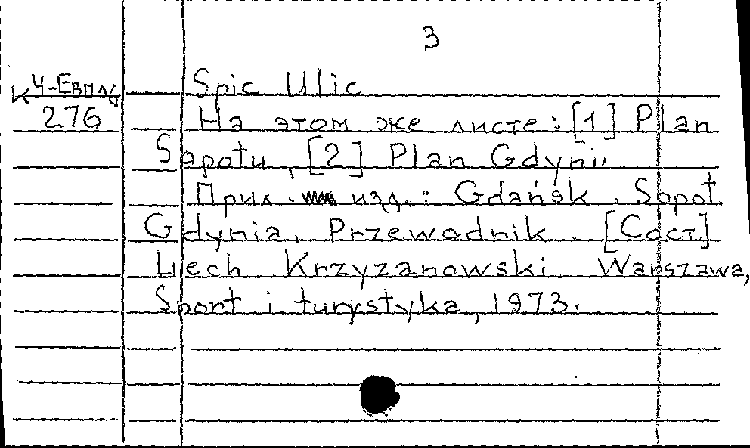 3
К Ч-Евпл6 Spis Ulic
276 На этом же листе: [1] Plan
Sopotu, [2] Plan Gdyni.
Прил. изд.: Gdańsk. Sopot.
Gdynia. Przewodnik. [Сост]
Lech Krzyzanowski. Warszawa,
Sport i turystyka, 1973.